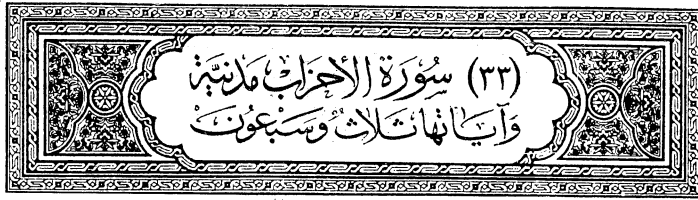 (٣٣) سُورَة الأحزاب مَدنيَّة
وَآيَاتها ثَلاث وَسَبْعُونَ